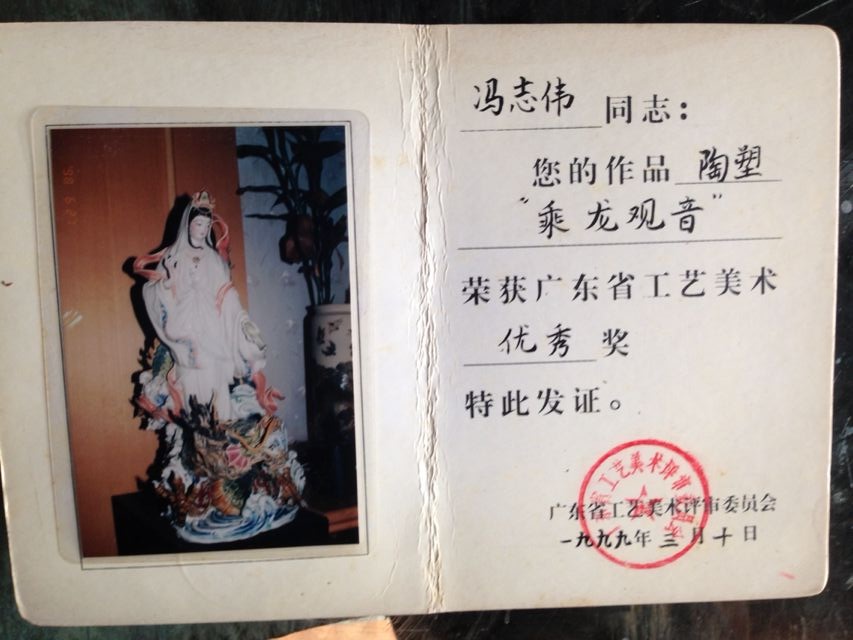 冯志伟 同志：
您的作品 陶塑
“乘龙观音”
荣获广东省工艺美术
优秀 奖
特此发证。
广东省工艺美术评审委员会
一九九九年三月十日